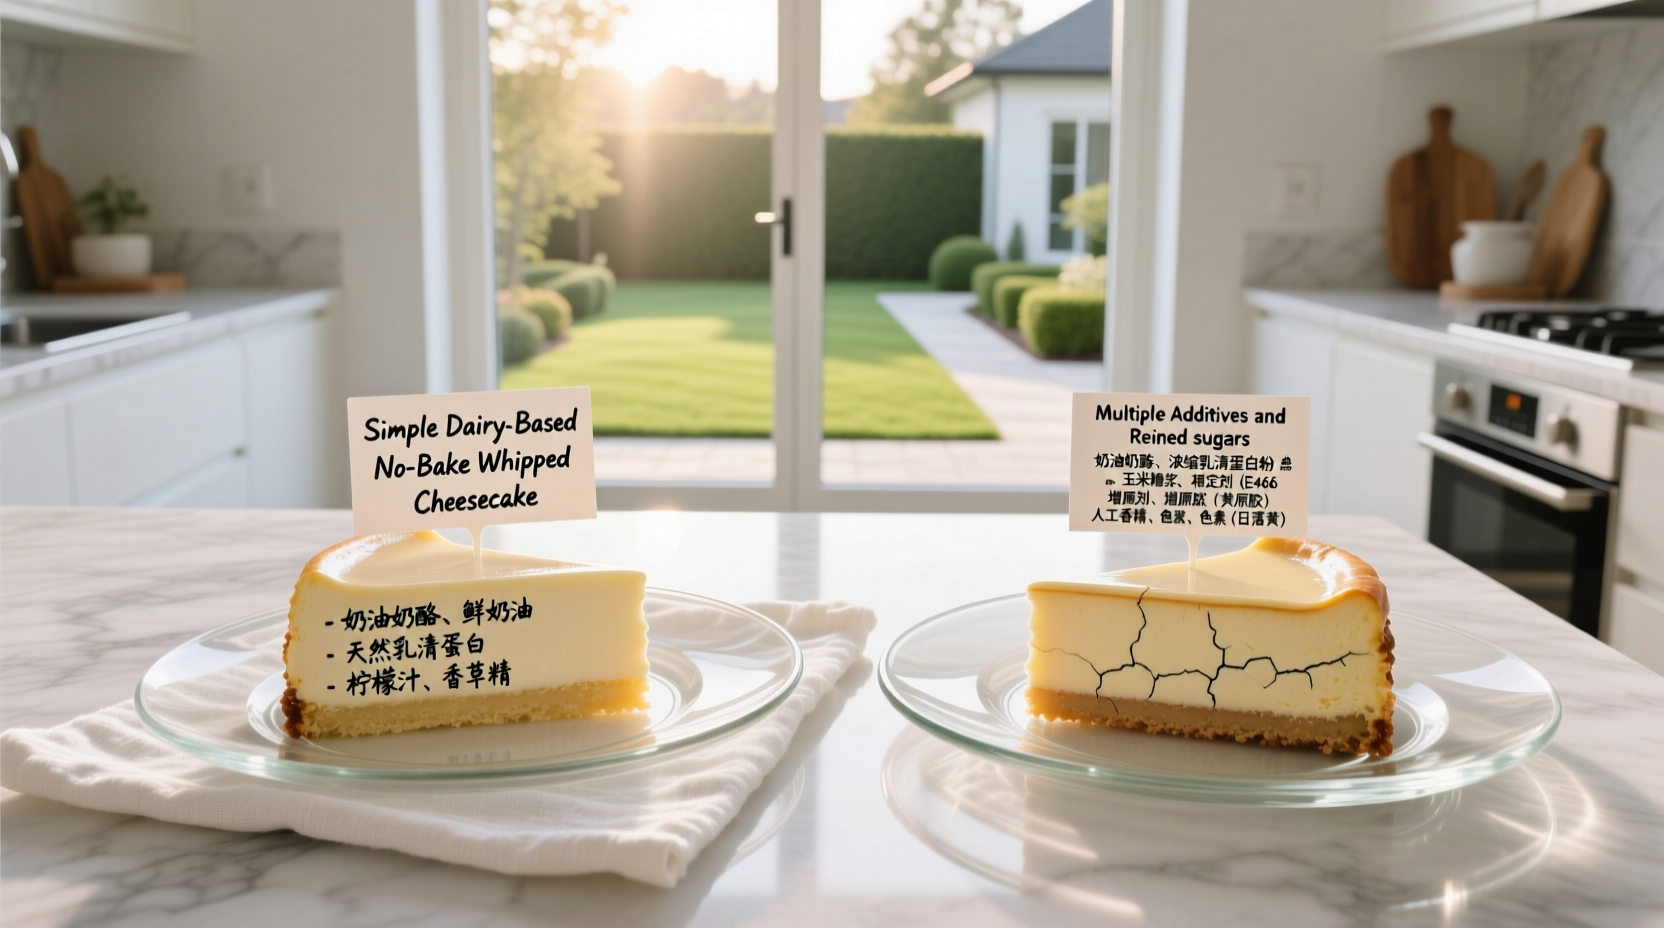 Simple Dairy-Based
No-Bake Whipped
Cheesecake
- 奶油奶酪、鲜奶油
- 天然乳清蛋白
- 柠檬汁、香草精
Multiple Additives and
Reined sugars
奶油奶酪、浓缩乳清蛋白粉
玉米糖浆、稳定剂 (E466
增稠剂、增稠胶 (黄原胶)
人工香精、色浆、色素 (日落黄)